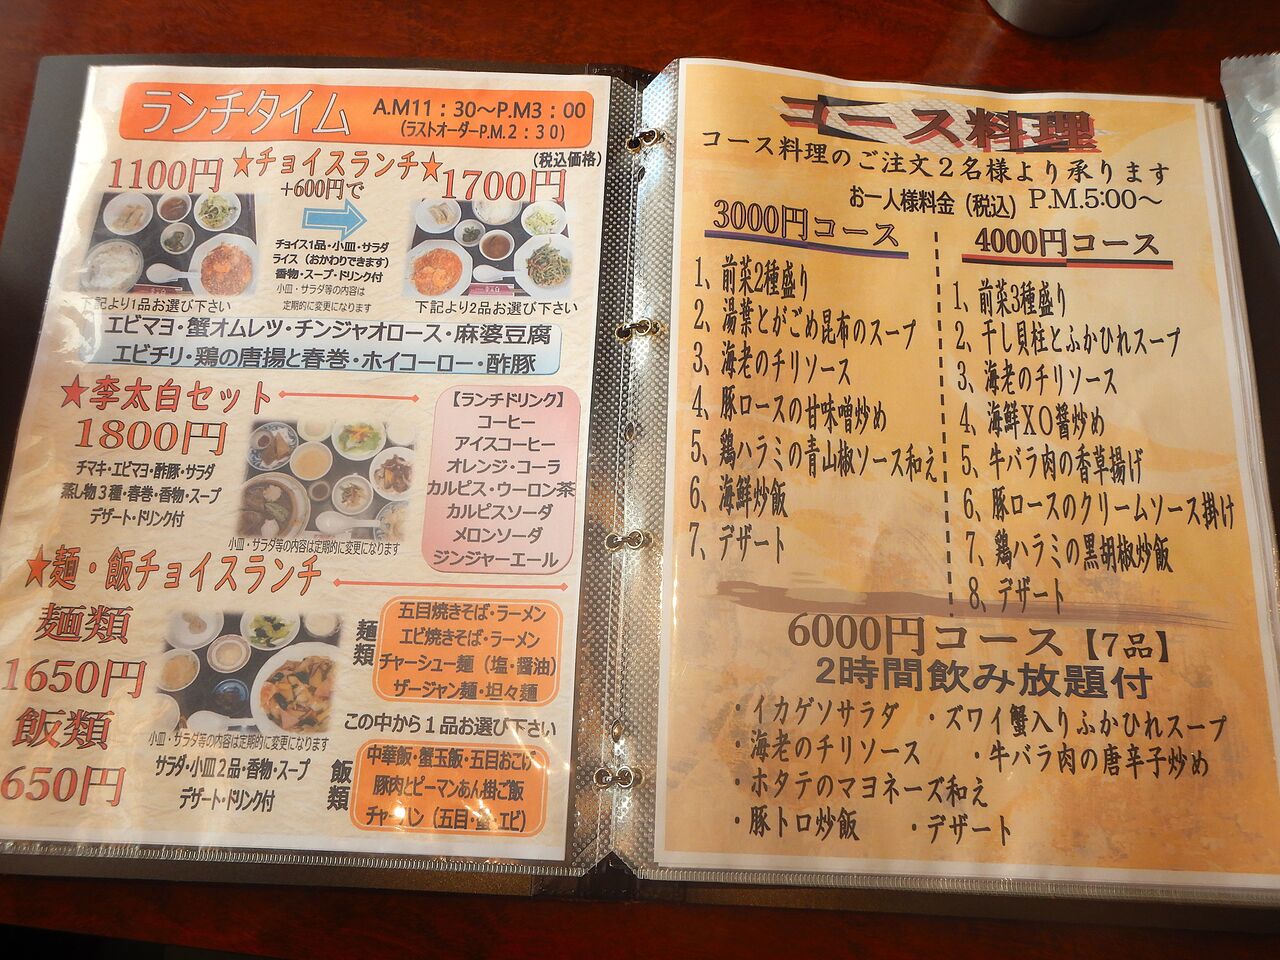 ランチタイム A.M11:30～P.M3:00
(ラストオーダーP.M.2:30)
★チョイスランチ★ (税込価格)
1100円 +600円で 1700円
チョイス1品・小皿・サラダ
ライス（おかわりできます）
香物・スープ・ドリンク付
小皿・サラダ等の内容は
定期的に変更になります
下記より1品お選び下さい
下記より2品お選び下さい
エビマヨ・蟹オムレツ・チンジャオロース・麻婆豆腐
エビチリ・鶏の唐揚と春巻・ホイコーロー・酢豚
★李太白セット
1800円
チマキ・エビマヨ・酢豚・サラダ
蒸し物3種・春巻・香物・スープ
デザート・ドリンク付
小皿・サラダ等の内容は定期的に変更になります
【ランチドリンク】
コーヒー
アイスコーヒー
オレンジ・コーラ
カルピス・ウーロン茶
カルピスソーダ
メロンソーダ
ジンジャーエール
★麺・飯チョイスランチ
麺類
1650円
飯類
650円
小皿・サラダ等の内容は定期的に変更になります
サラダ・小皿2品・香物・スープ
デザート・ドリンク付
麺類
五目焼きそば・ラーメン
エビ焼きそば・ラーメン
チャーシュー麺（塩・醤油）
ザージャン麺・坦々麺
この中から1品お選び下さい
飯類
中華飯・蟹玉飯・五目おこげ
豚肉とピーマンあん掛ご飯
チャーハン（五目・蟹・エビ）
コース料理
コース料理のご注文2名様より承ります
お一人様料金（税込） P.M.5:00～
3000円コース
1、前菜2種盛り
2、湯葉とがごめ昆布のスープ
3、海老のチリソース
4、豚ロースの甘味噌炒め
5、鶏ハラミの青山椒ソース和え
6、海鮮炒飯
7、デザート
4000円コース
1、前菜3種盛り
2、干し貝柱とふかひれスープ
3、海老のチリソース
4、海鮮XO醤炒め
5、牛バラ肉の香草揚げ
6、豚ロースのクリームソース掛け
7、鶏ハラミの黒胡椒炒飯
8、デザート
6000円コース【7品】
2時間飲み放題付
・イカゲソサラダ ・ズワイ蟹入りふかひれスープ
・海老のチリソース ・牛バラ肉の唐辛子炒め
・ホタテのマヨネーズ和え
・豚トロ炒飯 ・デザート